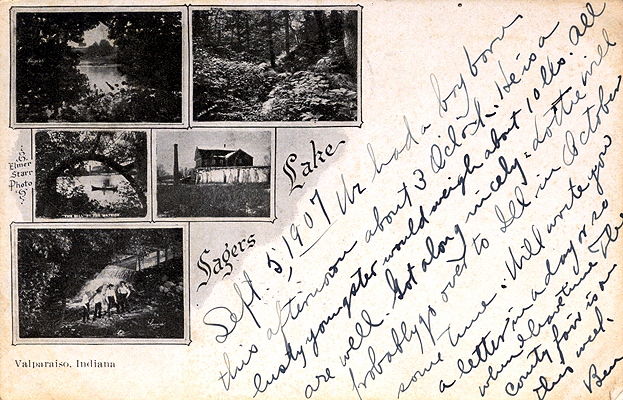 Elmer
Starr
Photo
Sagers Lake
Valparaiso, Indiana
Sept. 5, 1907 We had a boy born
this afternoon about 3 Oclock. He is a
lusty youngster would weigh about 10 lbs. all
are well. Got along nicely = Lottie will
probably go over to Ill in October
some time. Will write you
a letter in a day or so
when I have time The
county fair is on
this week.
Ben